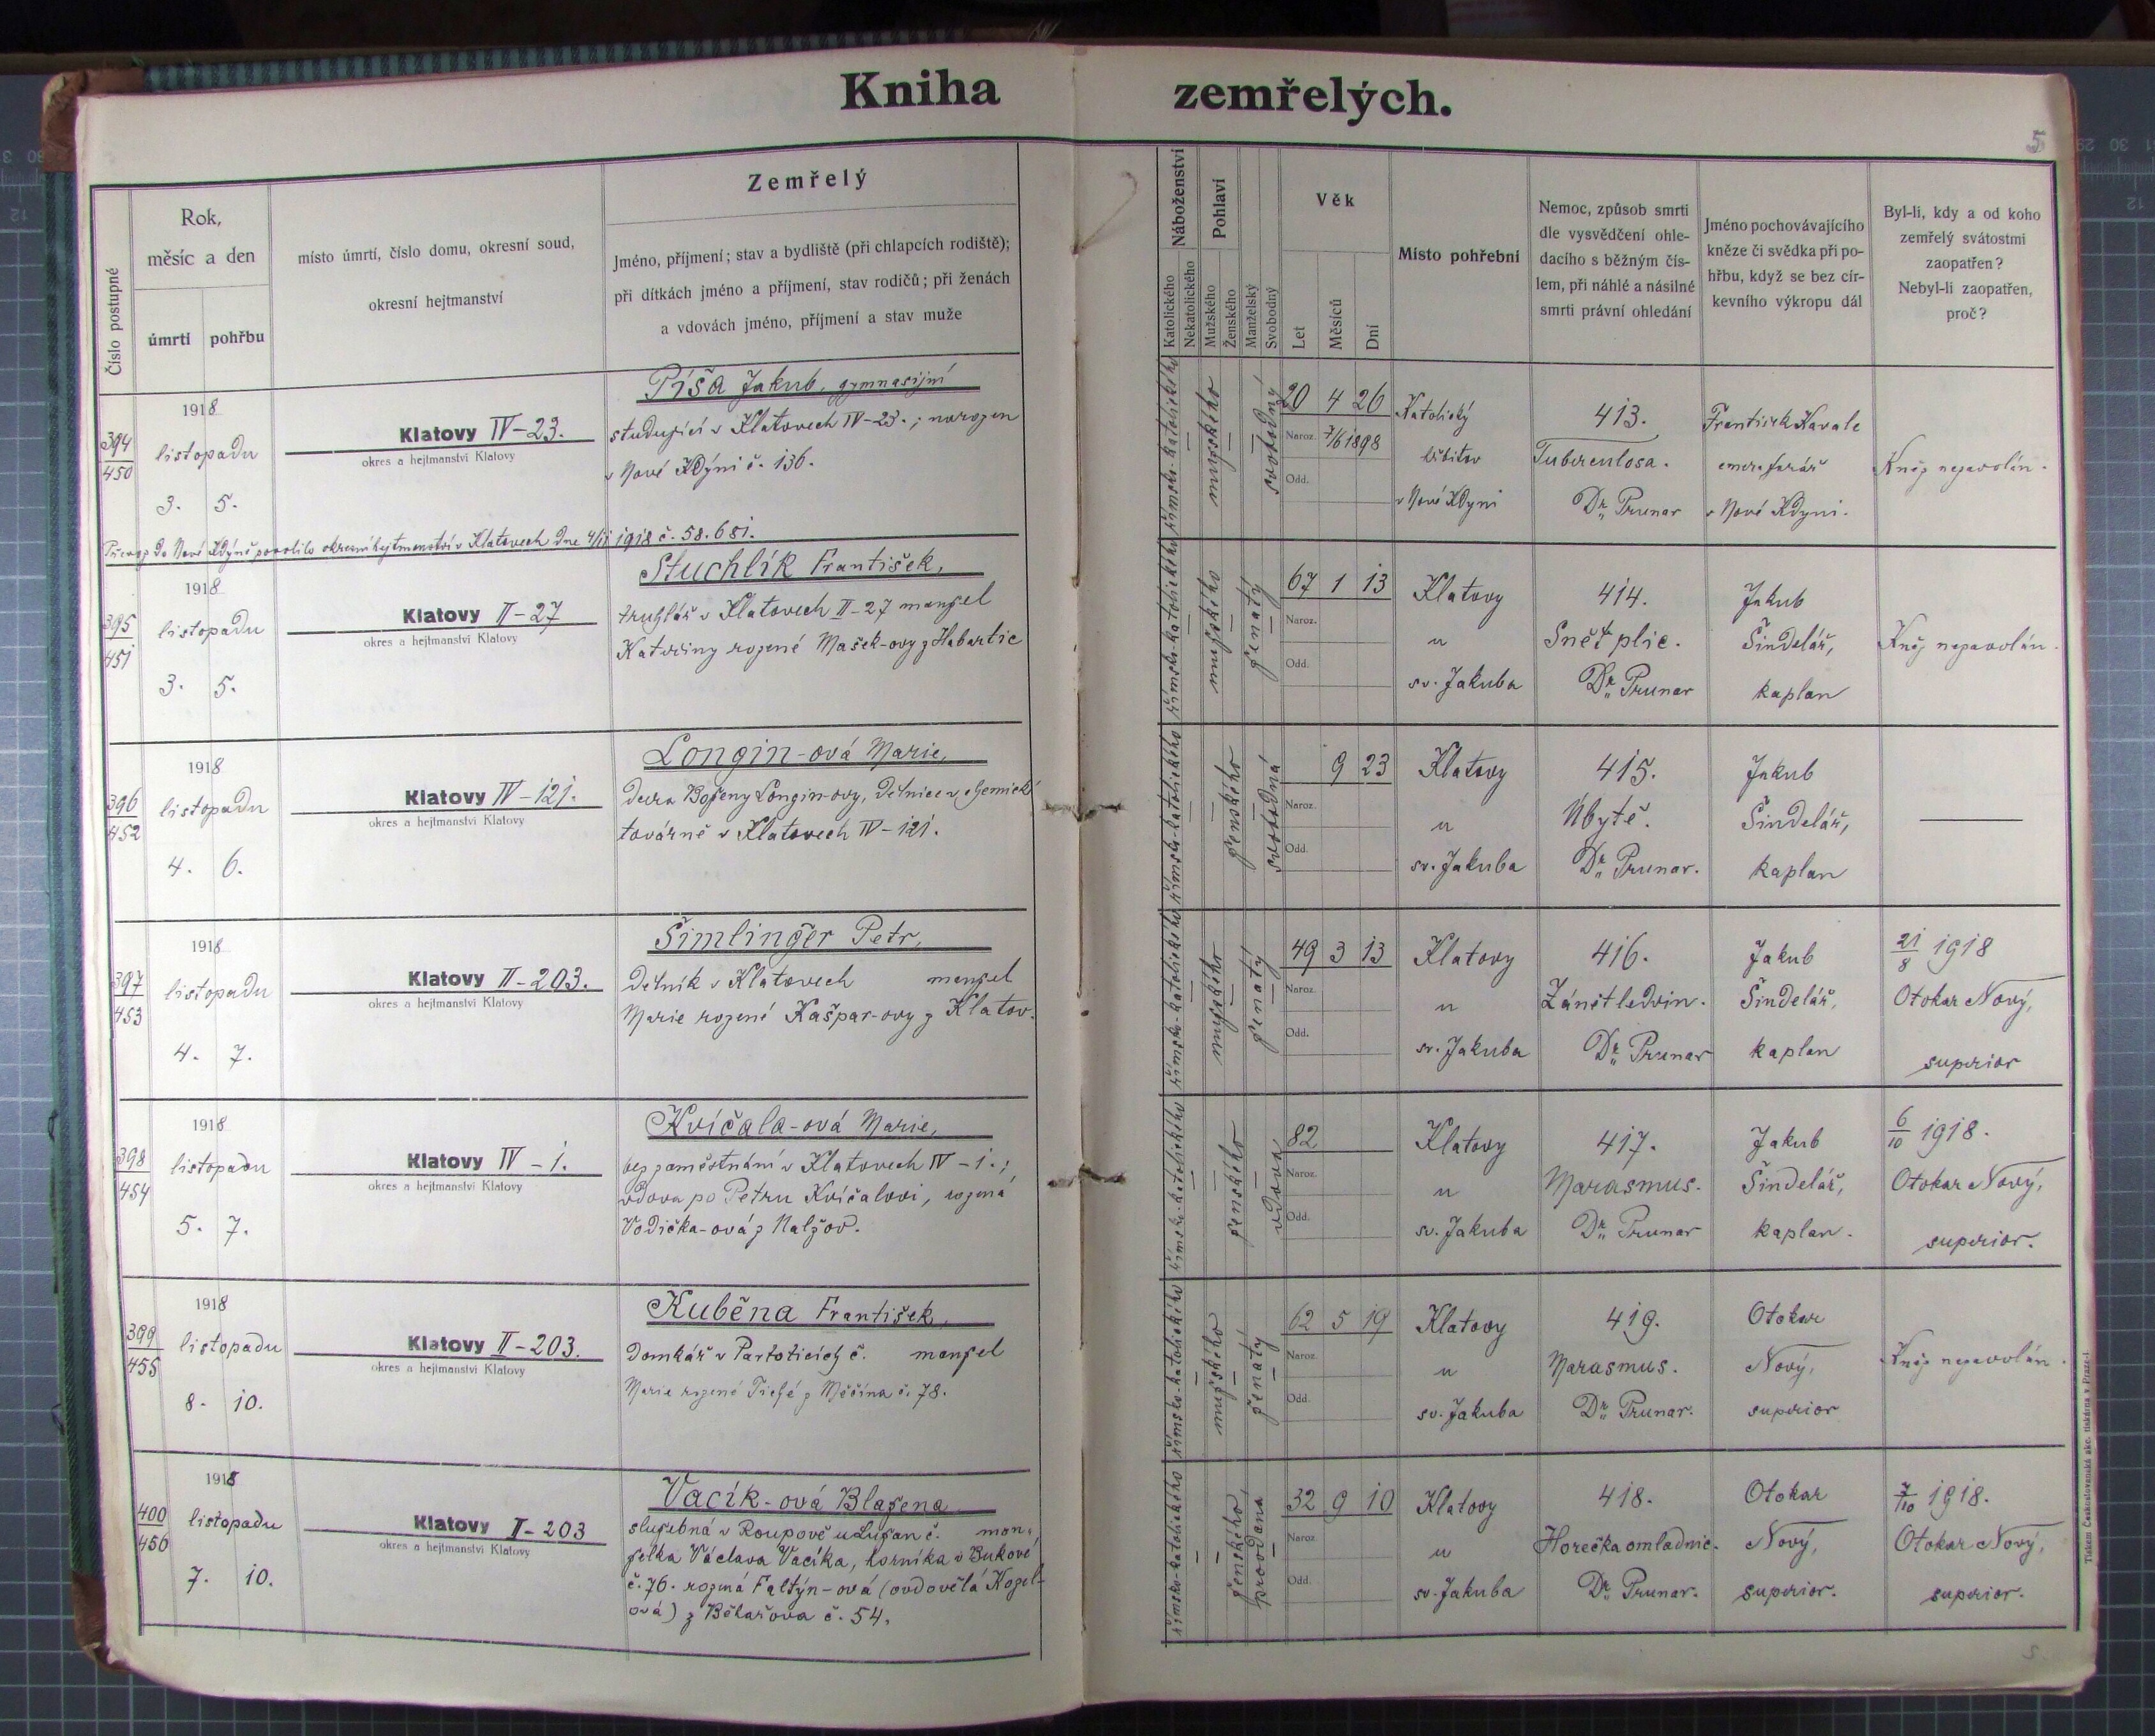 Kniha zemřelých.
5
Číslo postupné
Rok,
měsíc a den
úmrtí
pohřbu
místo úmrtí, číslo domu, okresní soud,
okresní hejtmanství
Zemřelý
Jméno, příjmení; stav a bydliště (při chlapcích rodiště);
při dítkách jméno a příjmení, stav rodičů; při ženách
a vdovách jméno, příjmení a stav muže
Náboženství
Katolického
Nekatolického
Pohlaví
Mužského
Ženského
Manželský
Svobodný
Věk
Let
Měsíců
Dní
Místo pohřební
Nemoc, způsob smrti
dle vysvědčení ohle-
dacího s běžným čís-
lem, při náhlé a násilné
smrti právní ohledání
Jméno pochovávajícího
kněze či svědka při po-
hřbu, když se bez cír-
kevního výkropu dál
Byl-li, kdy a od koho
zemřelý svátostmi
zaopatřen?
Nebyl-li zaopatřen,
proč?
394
450
1918
listopadu
3. 5.
Klatovy IV-23.
okres a hejtmanství Klatovy
Píša Jakub, gymnasijní
studující v Klatovech IV-23.; narozen
v Nové Kdýni č. 136.
římsko-katolického
mužského
svobodný
20 4 26
Naroz. 7/6 1898
Odd.
Katolický
hřbitov
v Nové Kdyni
413.
Tuberculosa.
Dr. Prunar
František Havale
emer. farář
v Nové Kdyni.
Kněz nepovolán.
Převoz do Nové Kdýně povolilo okresní hejtmanství v Klatovech dne 4/11 1918 č. 58.681.
395
451
1918
listopadu
3. 5.
Klatovy II-27
okres a hejtmanství Klatovy
Stuchlík František,
truhlář v Klatovech II-27 manžel
Kateřiny rozené Mašek-ovy z Habartic
římsko-katolického
mužského
ženatý
67 1 13
Naroz.
Odd.
Klatovy
u
sv. Jakuba
414.
Sněť plic.
Dr. Prunar
Jakub
Šindelář,
kaplan
Kněz nepovolán.
396
452
1918
listopadu
4. 6.
Klatovy IV-121.
okres a hejtmanství Klatovy
Longin-ová Marie,
dcera Boženy Longin-ovy, dělnice v chemické
továrně v Klatovech IV-121.
římsko-katolického
ženského
svobodná
9 23
Naroz.
Odd.
Klatovy
u
sv. Jakuba
415.
Úbytě.
Dr. Prunar.
Jakub
Šindelář,
kaplan
397
453
1918
listopadu
4. 7.
Klatovy II-203.
okres a hejtmanství Klatovy
Šimlinger Petr,
dělník v Klatovech manžel
Marie rozené Kašpar-ovy z Klatov.
římsko-katolického
mužského
ženatý
49 3 13
Naroz.
Odd.
Klatovy
u
sv. Jakuba
416.
Zánět ledvin.
Dr. Prunar
Jakub
Šindelář,
kaplan
21/8 1918
Otokar Nový,
superior
398
454
1918
listopadu
5. 7.
Klatovy IV-1.
okres a hejtmanství Klatovy
Kvíčala-ová Marie,
bez zaměstnání v Klatovech IV-1.;
vdova po Petru Kvíčalovi, rozená
Vodička-ová z Nalžov.
římsko-katolického
ženského
vdova
82
Naroz.
Odd.
Klatovy
u
sv. Jakuba
417.
Marasmus.
Dr. Prunar
Jakub
Šindelář,
kaplan.
6/10 1918.
Otokar Nový,
superior.
399
455
1918
listopadu
8. 10.
Klatovy II-203.
okres a hejtmanství Klatovy
Kuběna František,
domkář v Partoticích č. manžel
Marie rozené Tiché z Měčína č. 78.
římsko-katolického
mužského
ženatý
62 5 19
Naroz.
Odd.
Klatovy
u
sv. Jakuba
419.
Marasmus.
Dr. Prunar.
Otokar
Nový,
superior
Kněz nepovolán.
400
456
1918
listopadu
7. 10.
Klatovy II-203
okres a hejtmanství Klatovy
Vacík-ová Blažena
služebná v Roupově u Lužan č. man-
želka Václava Vacíka, horníka v Bukové
č. 76. rozená Faltýn-ová (ovdovělá Kozel-
ová) z Běhařova č. 54.
římsko-katolického
ženského
provdaná
32 9 10
Naroz.
Odd.
Klatovy
u
sv. Jakuba
418.
Horečka omladnic.
Dr. Prunar.
Otokar
Nový,
superior.
7/10 1918.
Otokar Nový,
superior.
Tiskem Československá akc. tiskárna v Praze-I